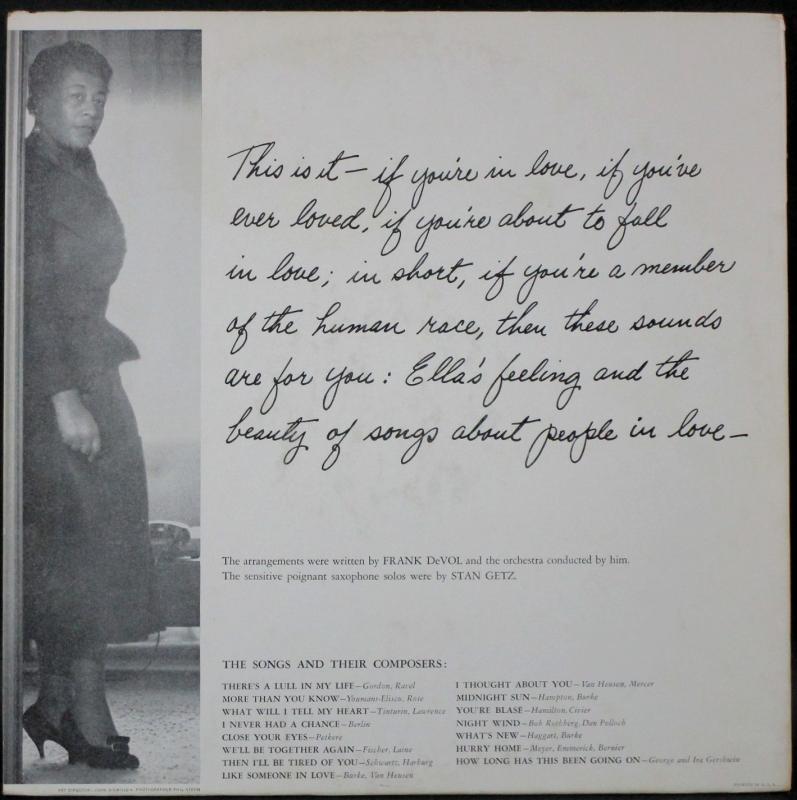 This is it — if you're in love, if you've
ever loved, if you're about to fall
in love; in short, if you're a member
of the human race, then these sounds
are for you: Ella's feeling and the
beauty of songs about people in love —
The arrangements were written by FRANK DeVOL and the orchestra conducted by him.
The sensitive poignant saxophone solos were by STAN GETZ.
THE SONGS AND THEIR COMPOSERS:
THERE'S A LULL IN MY LIFE—Gordon, Ravel
MORE THAN YOU KNOW—Youmans-Eliscu, Rose
WHAT WILL I TELL MY HEART—Tinturin, Lawrence
I NEVER HAD A CHANCE—Berlin
CLOSE YOUR EYES—Petkere
WE'LL BE TOGETHER AGAIN—Fischer, Laine
THEN I'LL BE TIRED OF YOU—Schwartz, Harburg
LIKE SOMEONE IN LOVE—Burke, Van Heusen
I THOUGHT ABOUT YOU—Van Heusen, Mercer
MIDNIGHT SUN—Hampton, Burke
YOU'RE BLASE—Hamilton, Civier
NIGHT WIND—Bob Rothberg, Dan Pollock
WHAT'S NEW—Haggart, Burke
HURRY HOME—Meyer, Emmerick, Bernier
HOW LONG HAS THIS BEEN GOING ON—George and Ira Gershwin
PRINTED IN U.S.A.